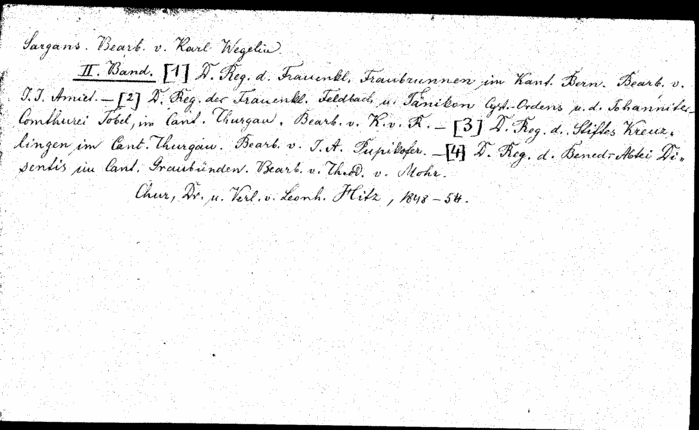 Sargans. Bearb. v. Karl Wegelin
II. Band. [1] D. Reg. d. Frauenkl. Fraubrunnen im Kant. Bern. Bearb. v.
J. J. Amiet. — [2] D. Reg. der Frauenkl. Feldbach u. Tänikon Cyst.-Ordens u. d. Johanniter-
Comthurei Tobel, im Cant. Thurgau. Bearb. v. K. v. R. — [3] D. Reg. d. Stiftes Kreuz-
lingen im Cant. Thurgau. Bearb. v. J. A. Pupikofer. — [4] D. Reg. d. Bened.-Abtei Di-
sentis im Cant. Graubünden. Bearb. v. Thod. v. Mohr.
Chur, Dr. u. Verl. v. Leonh. Hitz, 1848-54.